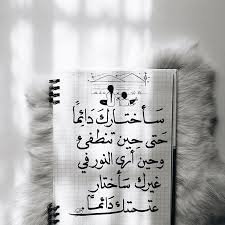 سـأختـارك دَائِمـاً
حَتـى حِين تنطفئ
وحين أرى النور في
غيرك سـأختـار
عتـمتك دَائمـاً